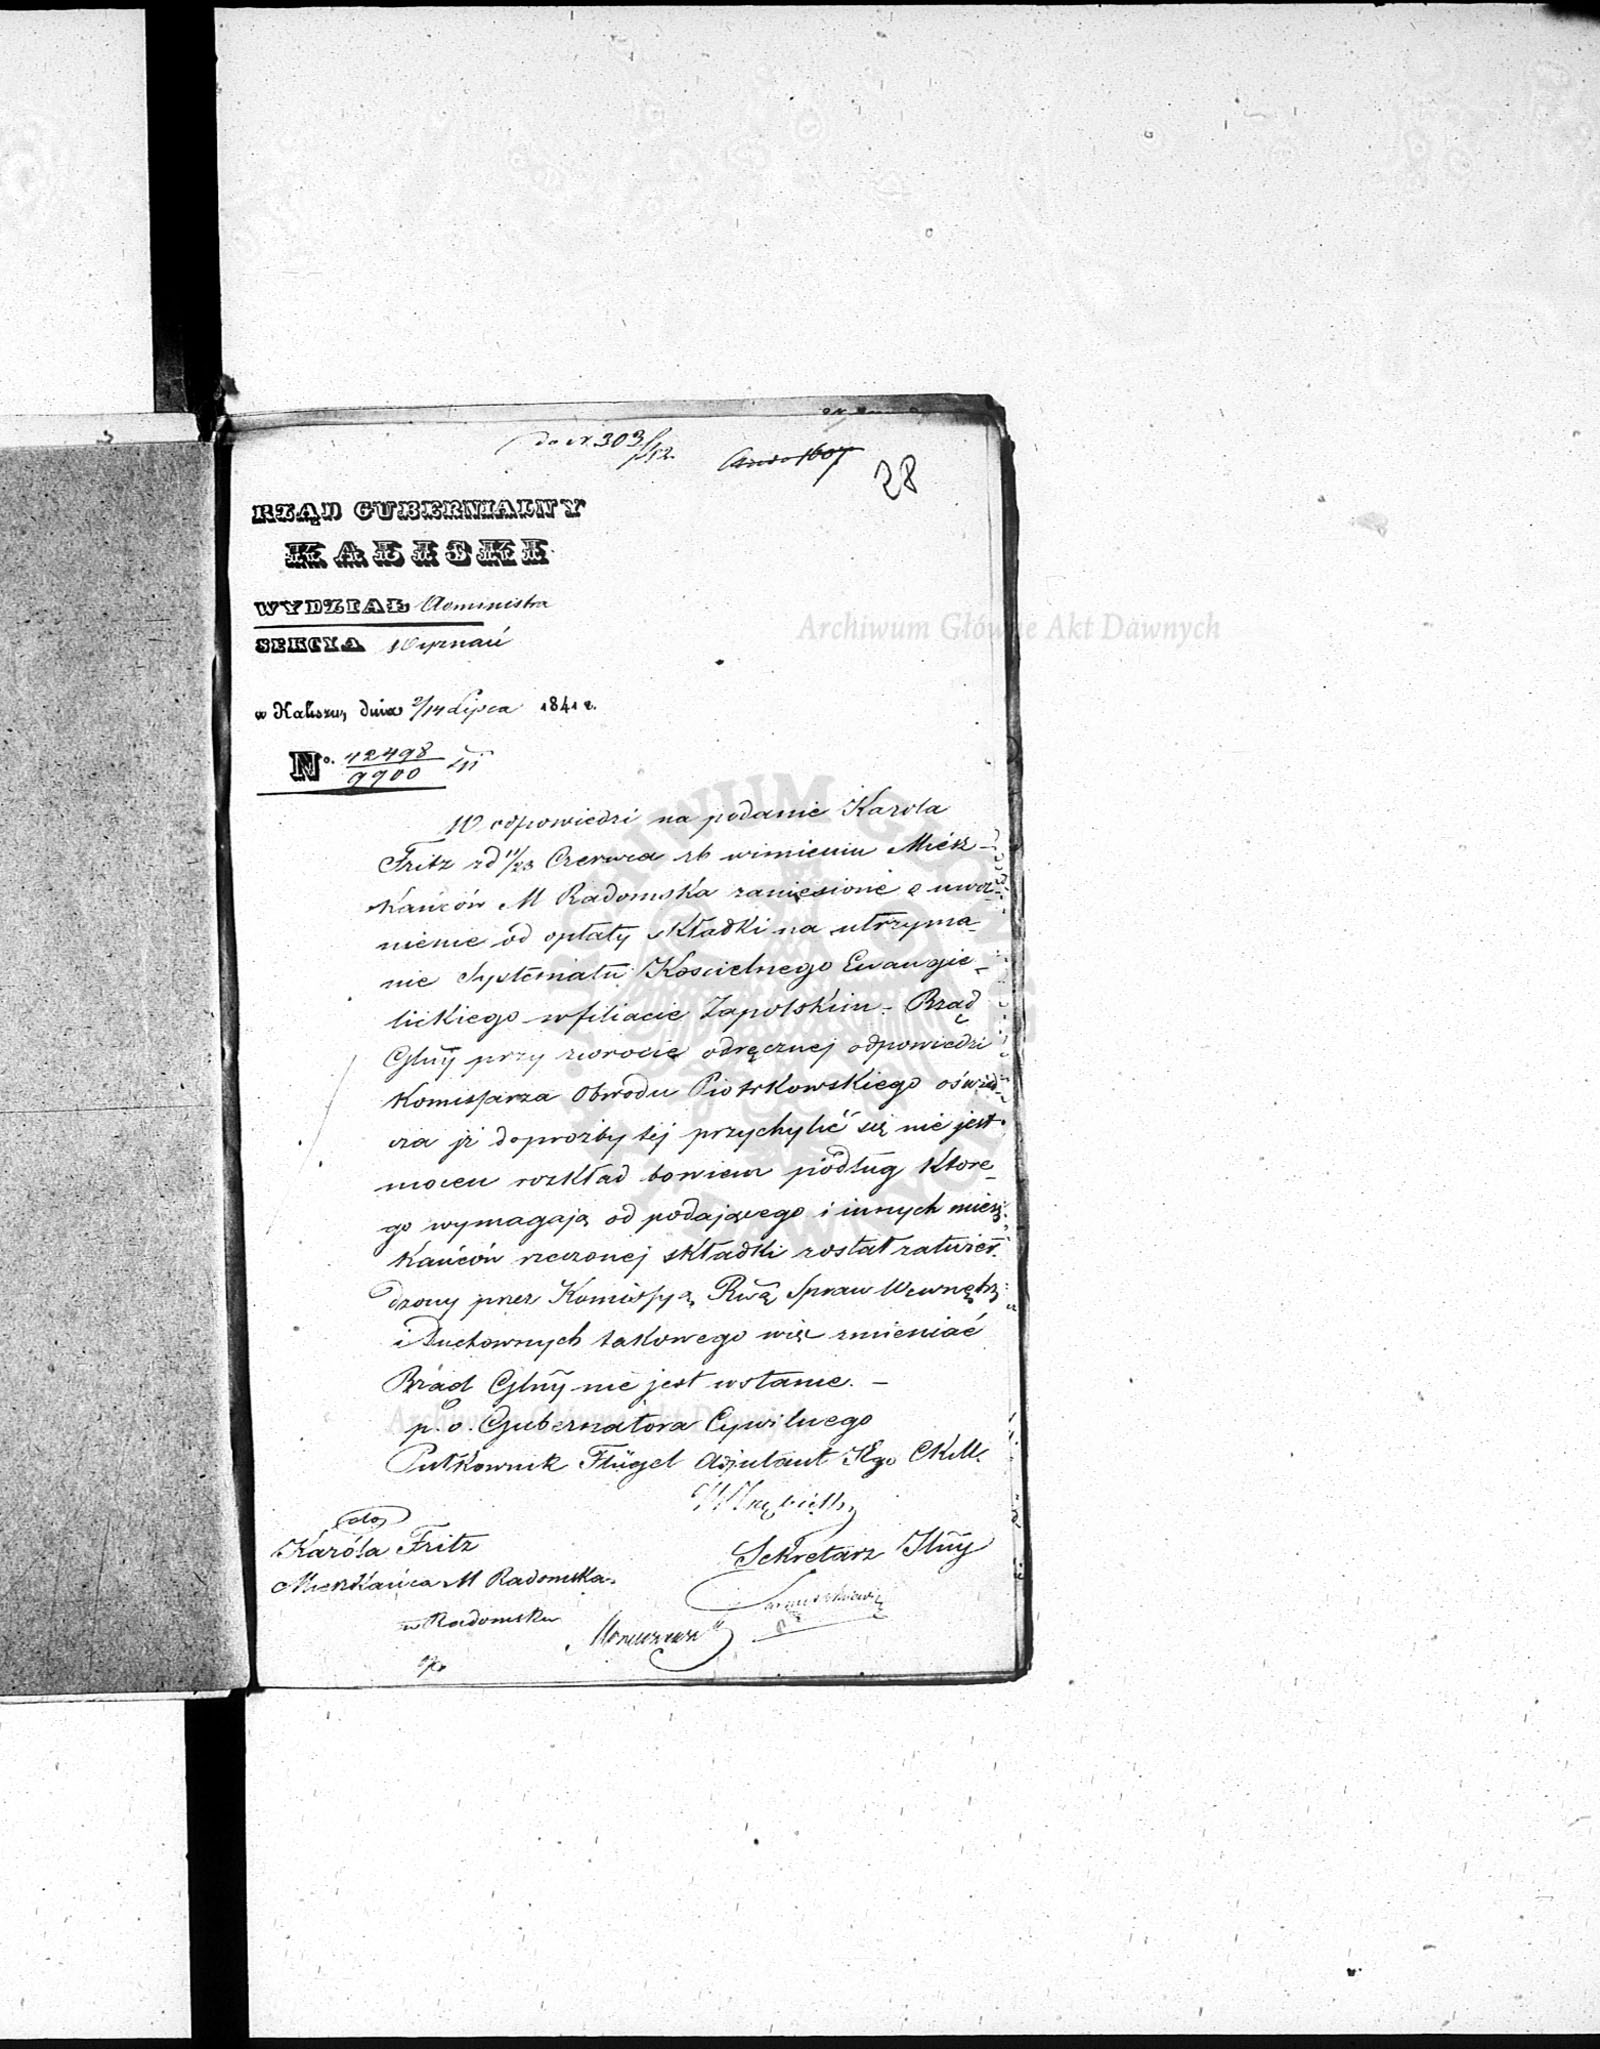 do N. 303/52
28
RZĄD GUBERNIALNY
KALISKI
WYDZIAŁ Administra
SEKCYA Wyznań
w Kaliszu, dnia 2/14 Lipca 1841 r.
No. 12498/9900
W odpowiedzi na podanie Karola
Fritz zd 11/23 Czerwca rb wimieniu Miesz-
kańców M Radomska zaniesione o uwol-
nienie od opłaty składki na utrzyma-
nie Systematu Koscielnego Ewangie-
lickiego wfiliacie Zapolskim - Rząd
Glny przy zwrocie odręcznej odpowiedzi
Kommissarza Obwodu Piotrkowskiego oświad-
cza iż doprożby tej przychylić się nie jest
mocen rozkład bowiem podług które-
go wymagają od podającego i innych miesz-
kańców rzeczonej składki został zatwier-
dzony przez Kommissyą Rwą Spraw Wewnętrz:
i Duchownych takowego więc zmieniać
Rząd Glny nie jest wstanie. -
p. o. Gubernatora Cywilnego
Pułkownik Flügel Adjutant JEgo CKM.
do
Karóla Fritz
Sekretarz Jlny
Mieszkańca M Radomska
w Radomsku
Archiwum Główne Akt Dawnych